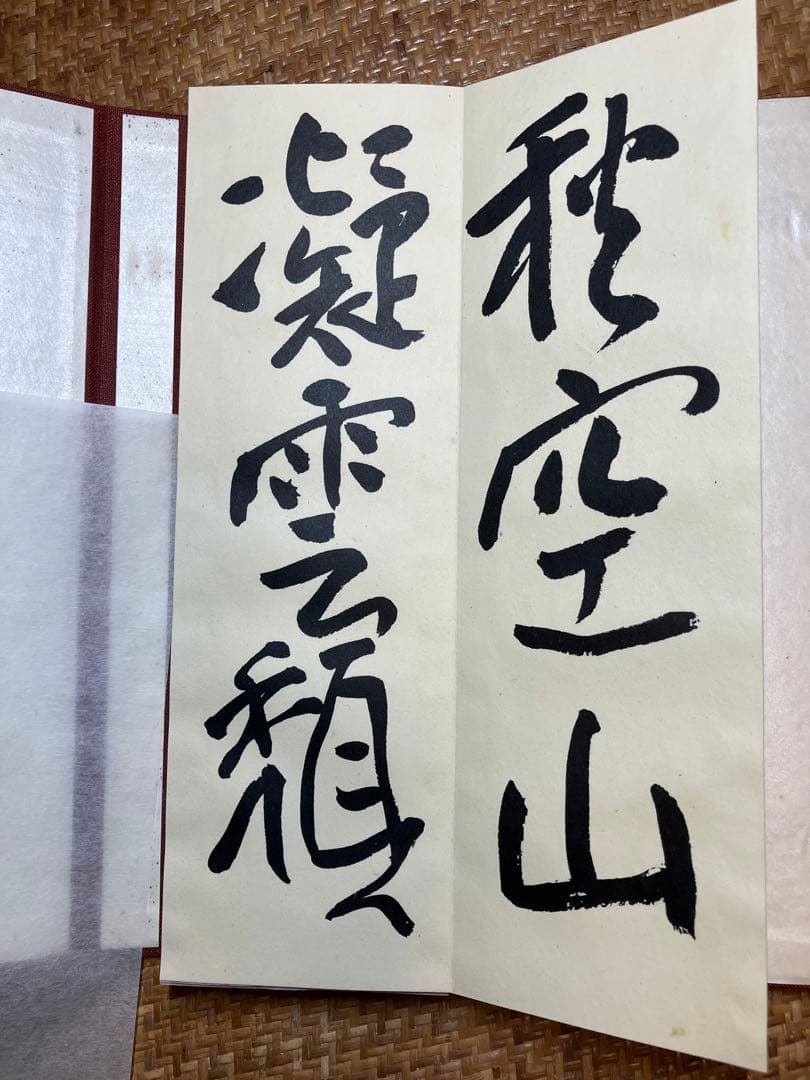 秋空山
凝雲頽